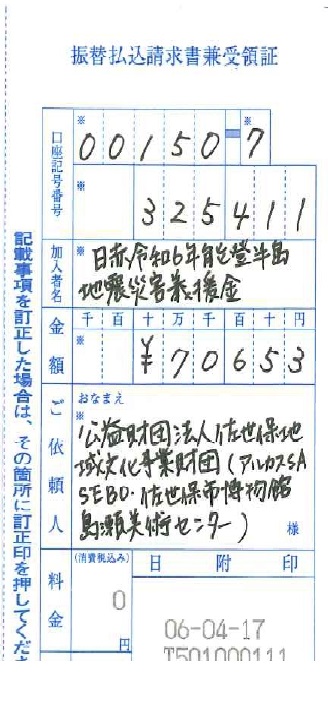 振替払込請求書兼受領証
口座記号番号
※
00150-7
※
325411
加入者名
※
日赤令和6年能登半島
地震災害義援金
金額
千百十万千百十円
※
¥70653
ご依頼人
おなまえ
※
公益財団法人佐世保地
域文化事業財団(アルカスSA
SEBO・佐世保市博物館
島瀬美術センター)
様
料金
(消費税込み)
0
円
日附印
06-04-17
T501000111
記載事項を訂正した場合は、その箇所に訂正印を押してくださ